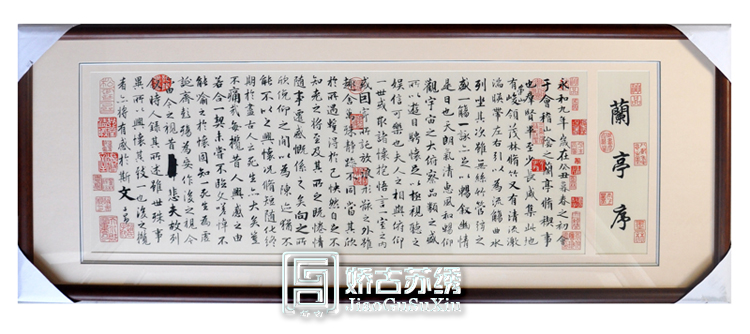 蘭亭序
永和九年歲在癸丑暮春之初會
于會稽山陰之蘭亭脩禊事
也羣賢畢至少長咸集此地
有峻領茂林脩竹又有清流激
湍暎帶左右引以為流觴曲水
列坐其次雖無絲竹管弦之
盛一觴一詠亦足以暢敘幽情
是日也天朗氣清惠風和暢仰
觀宇宙之大俯察品類之盛
所以遊目騁懷足以極視聽之
娛信可樂也夫人之相與俯仰
一世或取諸懷抱悟言一室之內
或因寄所託放浪形骸之外雖
趣舍萬殊靜躁不同當其欣
於所遇蹔得於己怏然自足不
知老之將至及其所之既惓情
隨事遷感慨係之矣向之所
欣俛仰之閒以為陳迹猶不
能不以之興懷況脩短隨化終
期於盡古人云死生亦大矣豈
不痛哉每攬昔人興感之由
若合一契未嘗不臨文嗟悼不
能喻之於懷固知一死生為虛
誕齊彭殤為妄作後之視今
亦由今之視昔悲夫故列
敘時人錄其所述雖世殊事
異所以興懷其致一也後之攬
者亦將有感於斯文
娇古苏绣
JiaoGuSuXiu